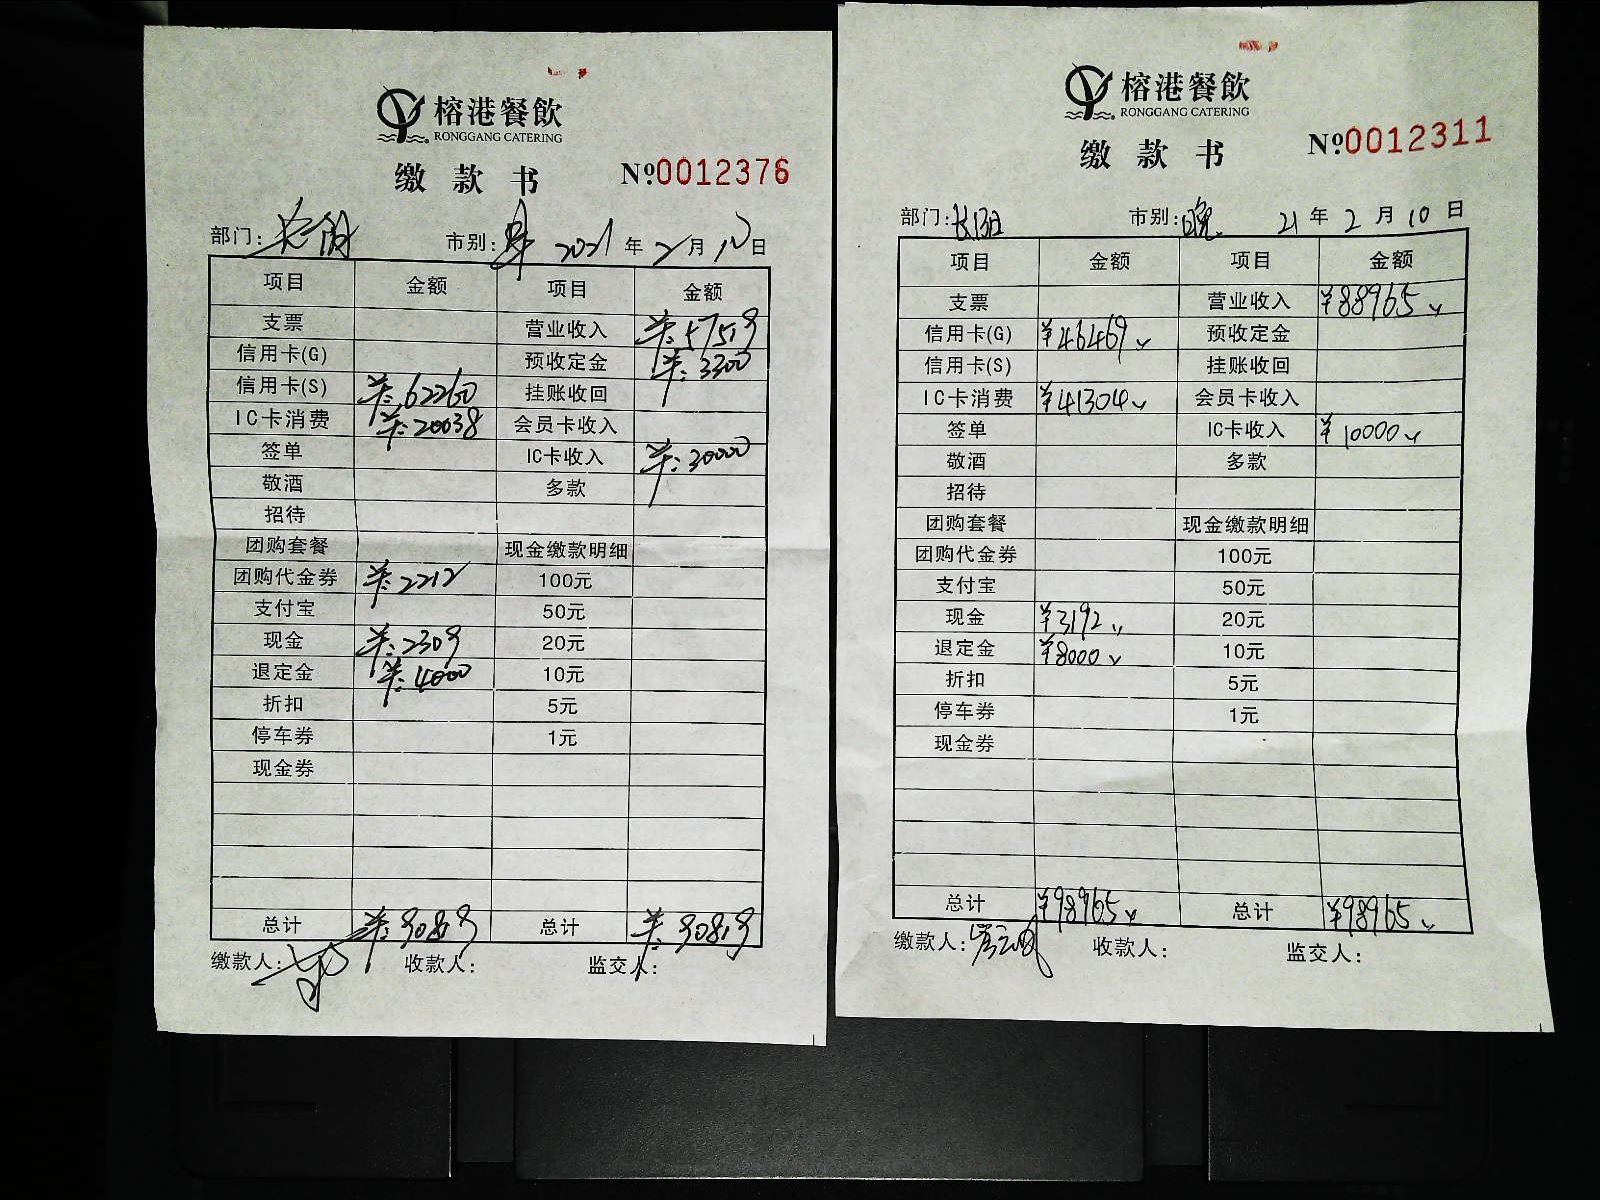 榕港餐飲
RONGGANG CATERING
缴款书 №0012376
部门: 市别: 2021年2月10日
项目 金额 项目 金额
支票 营业收入 ¥:57519
信用卡(G) 预收定金 ¥:3300
信用卡(S) ¥:62260 挂账收回
IC卡消费 ¥:20038 会员卡收入
签单 IC卡收入 ¥:30000
敬酒 多款
招待
团购套餐 现金缴款明细
团购代金券 ¥:2212 100元
支付宝 50元
现金 ¥:2309 20元
退定金 ¥:4000 10元
折扣 5元
停车券 1元
现金券
总计 ¥:90819 总计 ¥:90819
缴款人: 收款人: 监交人:
榕港餐飲
RONGGANG CATERING
缴款书 №0012311
部门:长阳 市别:晚 21年2月10日
项目 金额 项目 金额
支票 营业收入 ¥88965
信用卡(G) ¥46469 预收定金
信用卡(S) 挂账收回
IC卡消费 ¥41304 会员卡收入
签单 IC卡收入 ¥10000
敬酒 多款
招待
团购套餐 现金缴款明细
团购代金券 100元
支付宝 50元
现金 ¥3192 20元
退定金 ¥8000 10元
折扣 5元
停车券 1元
现金券
总计 ¥98965 总计 ¥98965
缴款人: 收款人: 监交人: